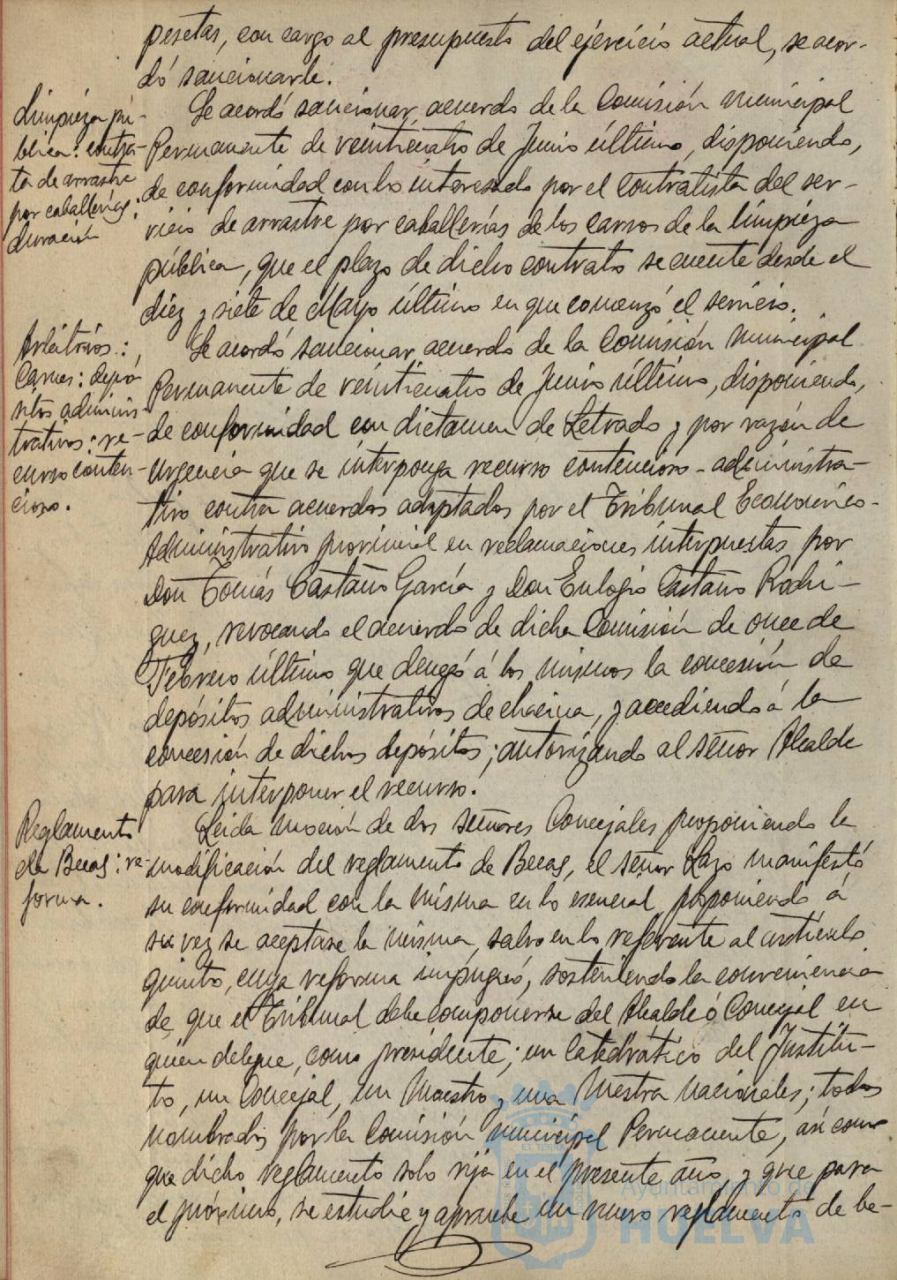 pesetas, con cargo al presupuesto del ejercicio actual, se acor-
dó sancionarle.
Limpieza pú-
blica: contra-
ta de arrastre
por caballerías:
duración
Se acordó sancionar acuerdo de la Comisión municipal
Permanente de veinticuatro de Junio último, disponiendo,
de conformidad con lo interesado por el contratista del ser-
vicio de arrastre por caballerías de los carros de la limpieza
pública, que el plazo de dicho contrato se cuente desde el
diez y siete de Mayo último en que comenzó el servicio.
Arbitrios:
Carnes: depó-
sitos adminis-
trativos: re-
curso conten-
cioso.
Se acordó sancionar acuerdo de la Comisión municipal
Permanente de veinticuatro de Junio último, disponiendo,
de conformidad con dictamen de Letrado y por razón de
urgencia que se interponga recurso contencioso-administra-
tivo contra acuerdos adoptados por el Tribunal Económico-
Administrativo provincial en reclamaciones interpuestas por
Don Tomás Castaño García y Don Eulogio Castaño Rodri-
guez, revocando el acuerdo de dicha Comisión de once de
Febrero último que denegó á los mismos la concesión de
depósitos administrativos de chacina, y accediendo á la
concesión de dichos depósitos; autorizando al señor Alcalde
para interponer el recurso.
Reglamento
de Becas: re-
forma.
Leida moción de dos señores Concejales proponiendo la
modificación del reglamento de Becas, el señor Lazo manifestó
su conformidad con la misma en lo esencial, proponiendo á
su vez se aceptase la misma, salvo en lo referente al artículo
quinto, cuya reforma impugnó, sosteniendo la conveniencia
de que el Tribunal debe componerse del Alcalde ó Concejal en
quien delegue, como presidente; un catedrático del Institu-
to, un Concejal, un Maestro y una Mestra nacionales; todos
nombrados por la Comisión municipal Permanente, así como
que dicho reglamento solo rija en el presente año, y que para
el próximo, se estudie y apruebe un nuevo reglamento de be-
Ayuntamiento de
HUELVA